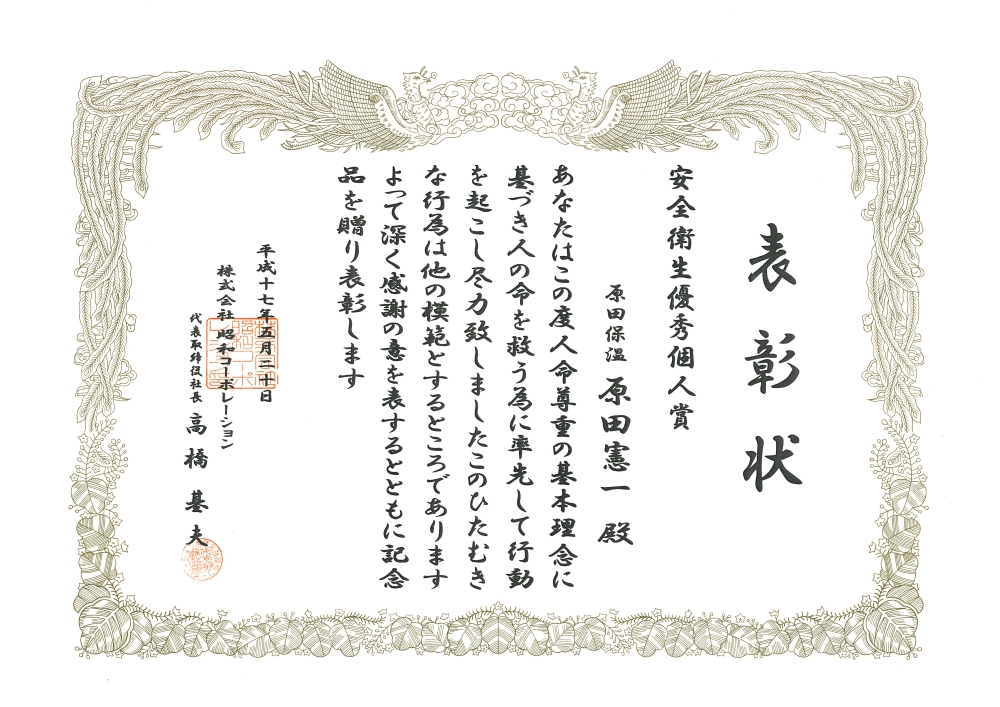 表彰状
安全衛生優秀個人賞
原田保温 原田憲一 殿
あなたはこの度人命尊重の基本理念に
基づき人の命を救う為に率先して行動
を起こし尽力致しましたこのひたむき
な行為は他の模範とするところであります
よって深く感謝の意を表するとともに記念
品を贈り表彰します
平成十七年五月二十日
株式会社 昭和コーポレーション
代表取締役社長 高橋 基夫